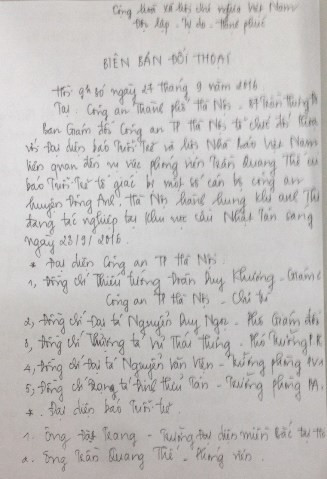 Cộng hòa xã hội chủ nghĩa Việt Nam
Độc lập - Tự do - Hạnh phúc
BIÊN BẢN ĐỐI THOẠI
Hồi 9h 50 ngày 27 tháng 9 năm 2016
Tại Công an Thành phố Hà Nội - 87 Trần Hưng
Ban Giám đốc Công an TP Hà Nội tổ chức đối thoại
với đại diện báo Tuổi Trẻ và Hội Nhà báo Việt Nam
liên quan đến vụ việc phóng viên Trần Quang Thế của
báo Tuổi Trẻ tố giác bị một số cán bộ công an
huyện Đông Anh, Hà Nội hành hung khi anh Thế
đang tác nghiệp tại khu vực cầu Nhật Tân sáng
ngày 23/9/2016.
* Đại diện Công an TP Hà Nội.
1, Đồng chí Thiếu tướng Đoàn Duy Khương - Giám đ
Công an TP Hà Nội - Chủ trì
2, Đồng chí Đại tá Nguyễn Duy Ngọc - Phó Giám đốc
3, Đồng chí Thượng tá Vũ Thái Hưng - Phó Trưởng
4, Đồng chí Đại tá Nguyễn Văn Viện - Trưởng phòng
5, Đồng chí Trung tá Đinh Hữu Tân - Trưởng phòng PA.
* Đại diện báo Tuổi trẻ.
1. Ông Đặng Trang - Trưởng Đại diện miền Bắc tại Hà
2. Ông Trần Quang Thế - Phóng viên.